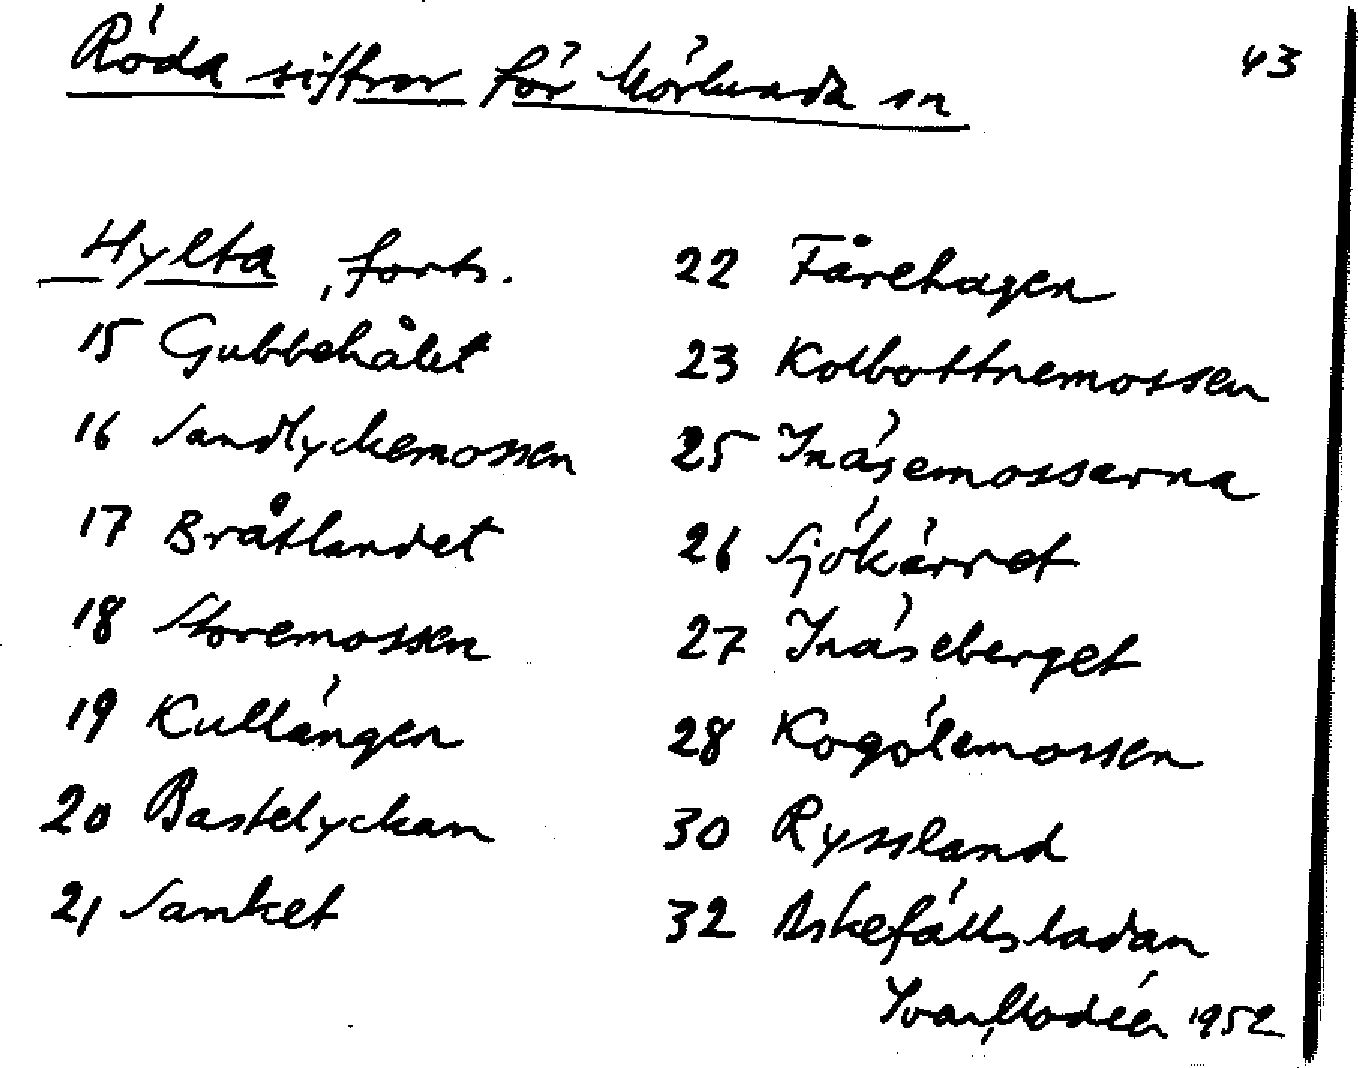 Röda siffror för Mörlunda sn
43
Hylta, forts.
15 Gubbehålet
16 Sandlyckemossen
17 Bråtlandet
18 Storemossen
19 Kullängen
20 Bastelyckan
21 Sanket
22 Fårehagen
23 Kolbottnemossen
25 Inåsemossarna
26 Sjökärret
27 Inåseberget
28 Kogölemossen
30 Ryssland
32 Askefällsladan
Ivar Modéer 1952